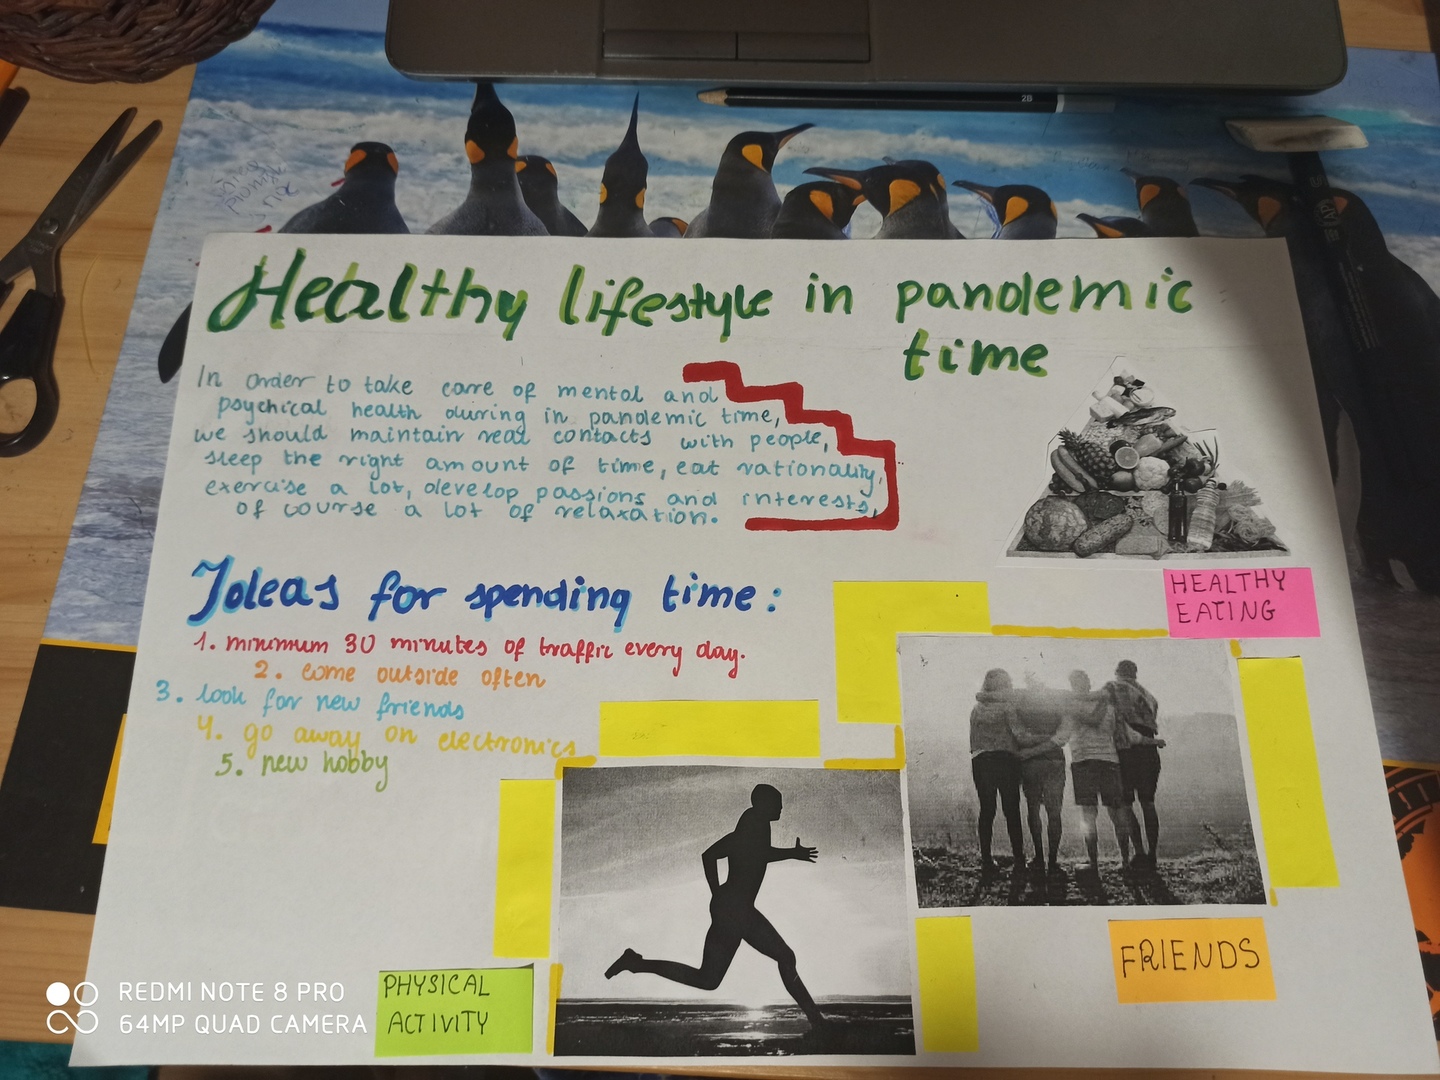 Healthy lifestyle in pandemic
time
In order to take care of mental and
psychical health during in pandemic time,
we should maintain real contacts with people,
sleep the right amount of time, eat rationality,
exercise a lot, develop passions and interests,
of course a lot of relaxation.
Ideas for spending time:
1. minimum 30 minutes of traffic every day.
2. come outside often
3. look for new friends
4. go away on electronics
5. new hobby
HEALTHY
EATING
FRIENDS
PHYSICAL
ACTIVITY
2B
REDMI NOTE 8 PRO
64MP QUAD CAMERA